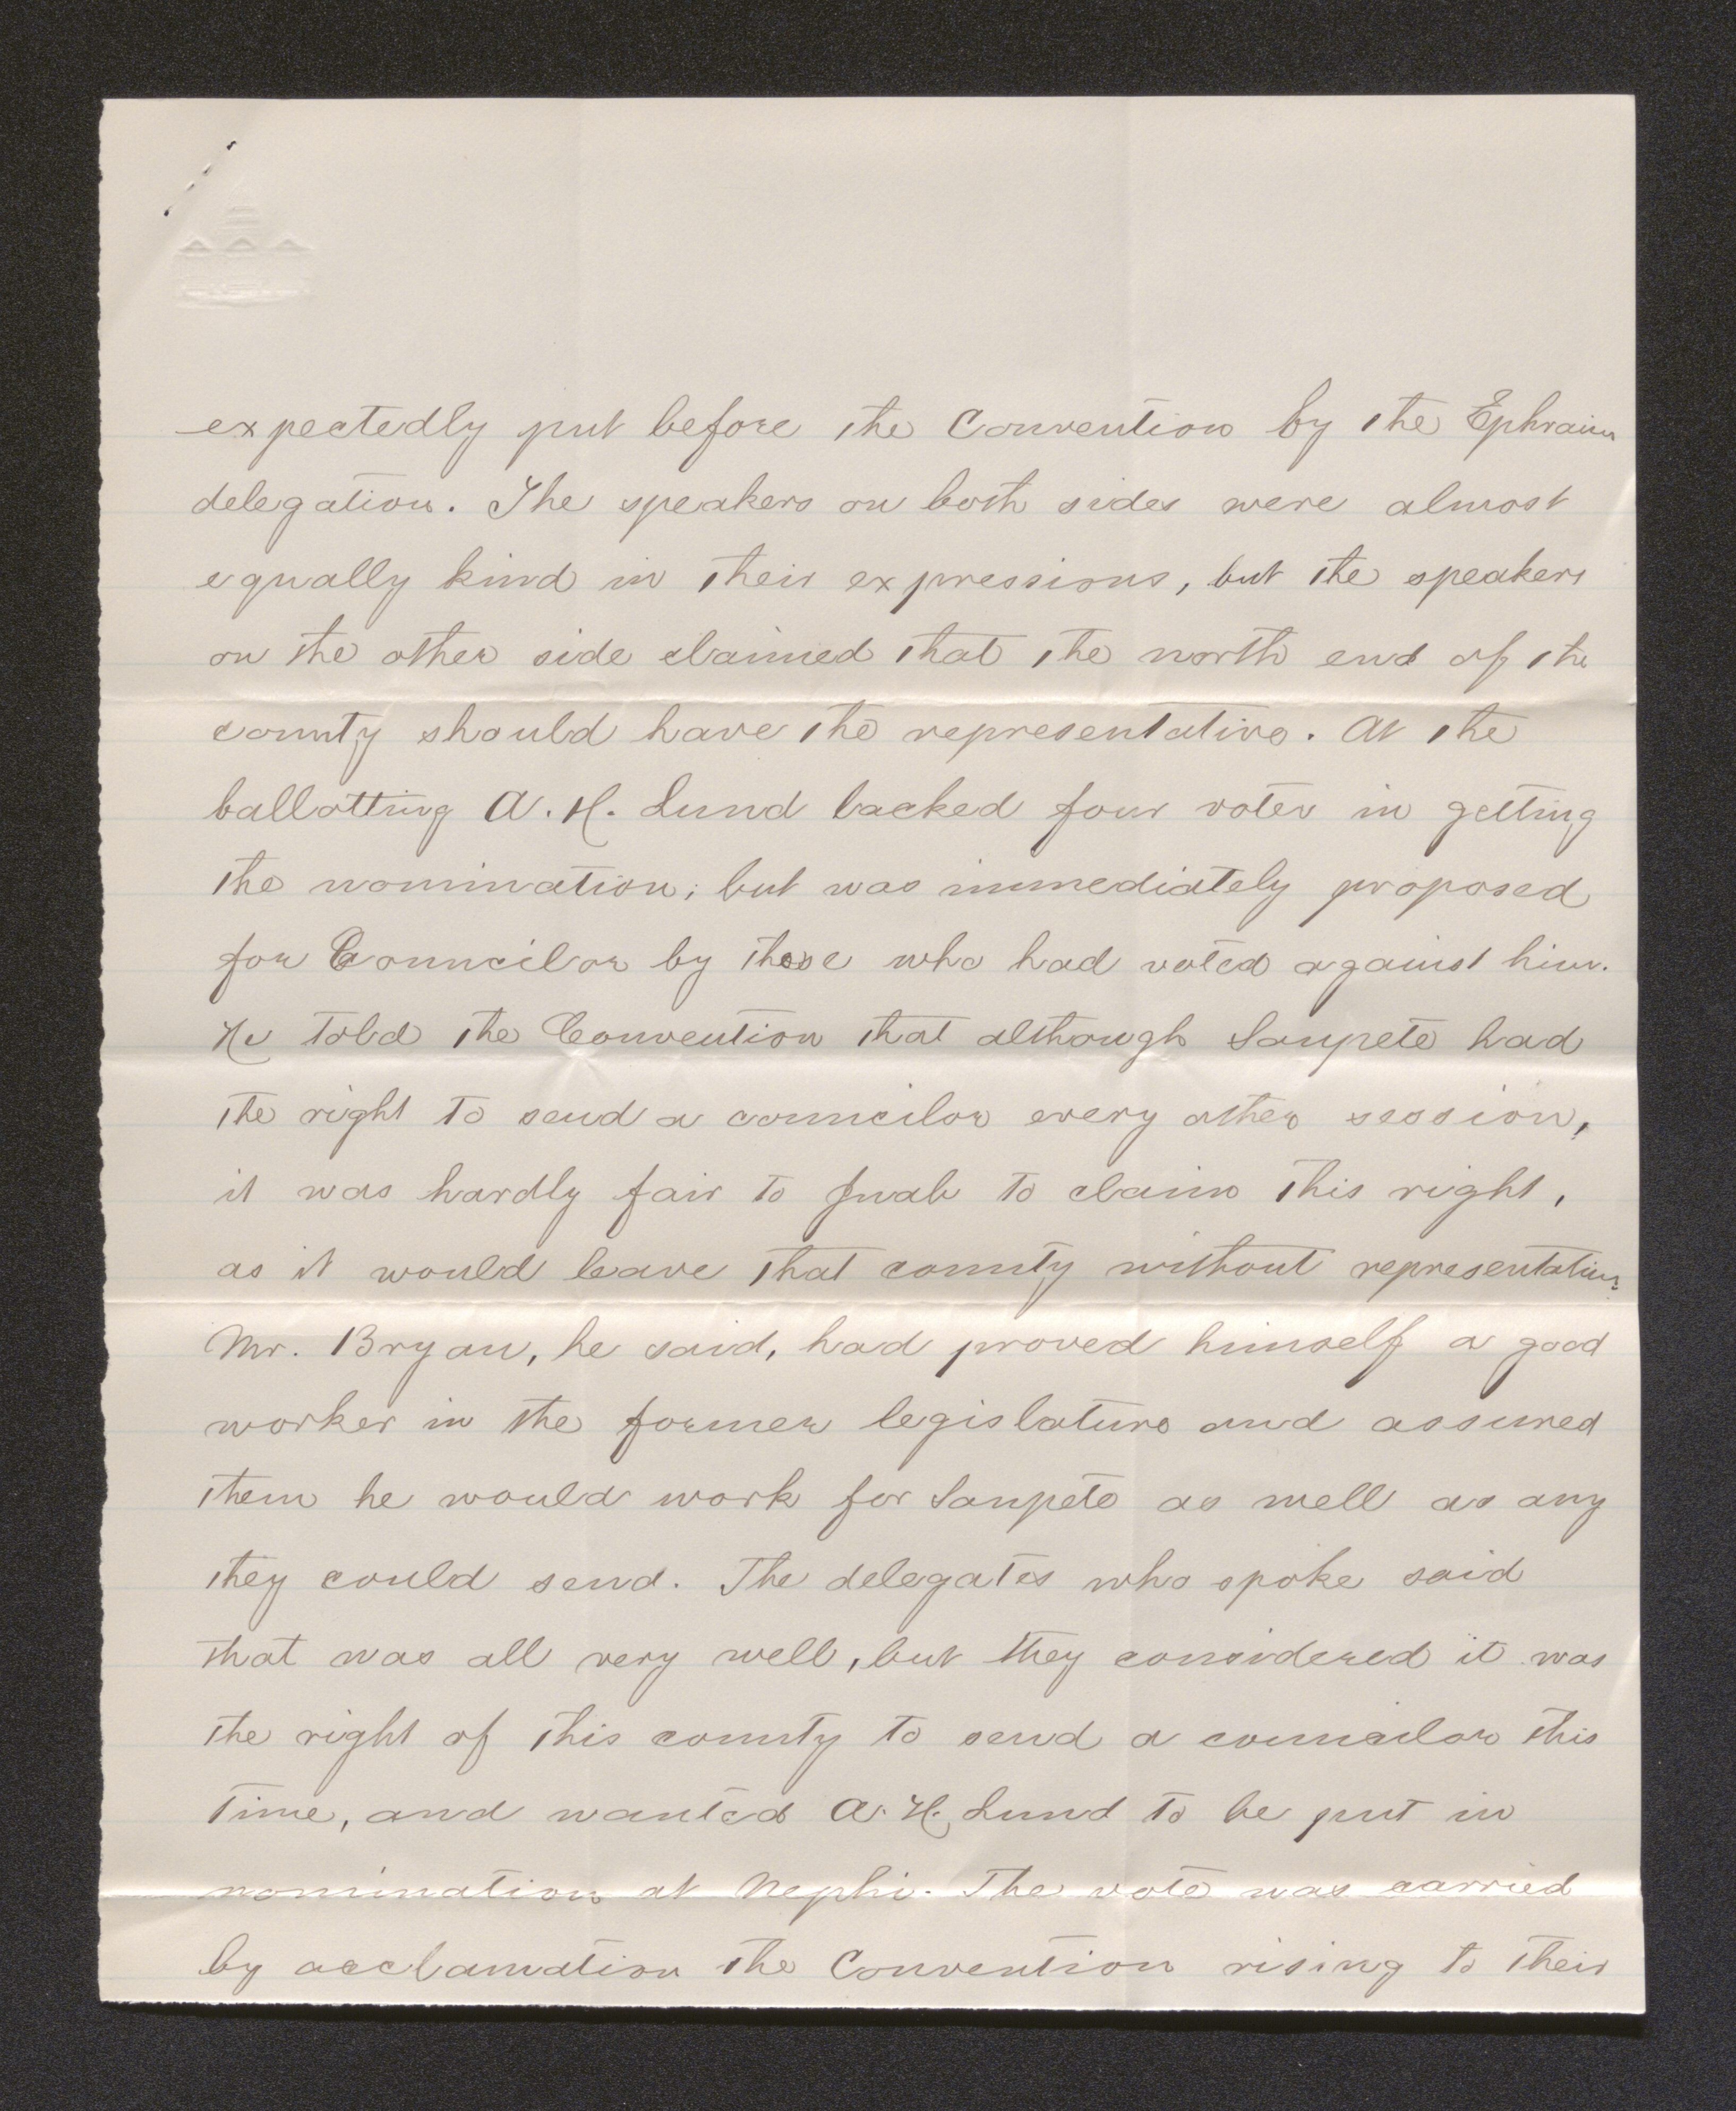 expectedly put before the Convention by the Ephraim
delegation. The speakers on both sides were almost
equally kind in their expressions, but the speakers
on the other side claimed that the north end of the
county should have the representative. At the
ballotting A. H. Lund lacked four votes in getting
the nomination; but was immediately proposed
for Councilor by those who had voted against him.
He told the Convention that although Sanpete had
the right to send a councilor every other session,
it was hardly fair to Juab to claim this right,
as it would leave that county without representation.
Mr. Bryan, he said, had proved himself a good
worker in the former legislature and assured
them he would work for Sanpete as well as any
they could send. The delegates who spoke said
that was all very well, but they considered it was
the right of this county to send a councilor this
time, and wanted A. H. Lund to be put in
nomination at Nephi. The vote was carried
by acclamation the Convention rising to their